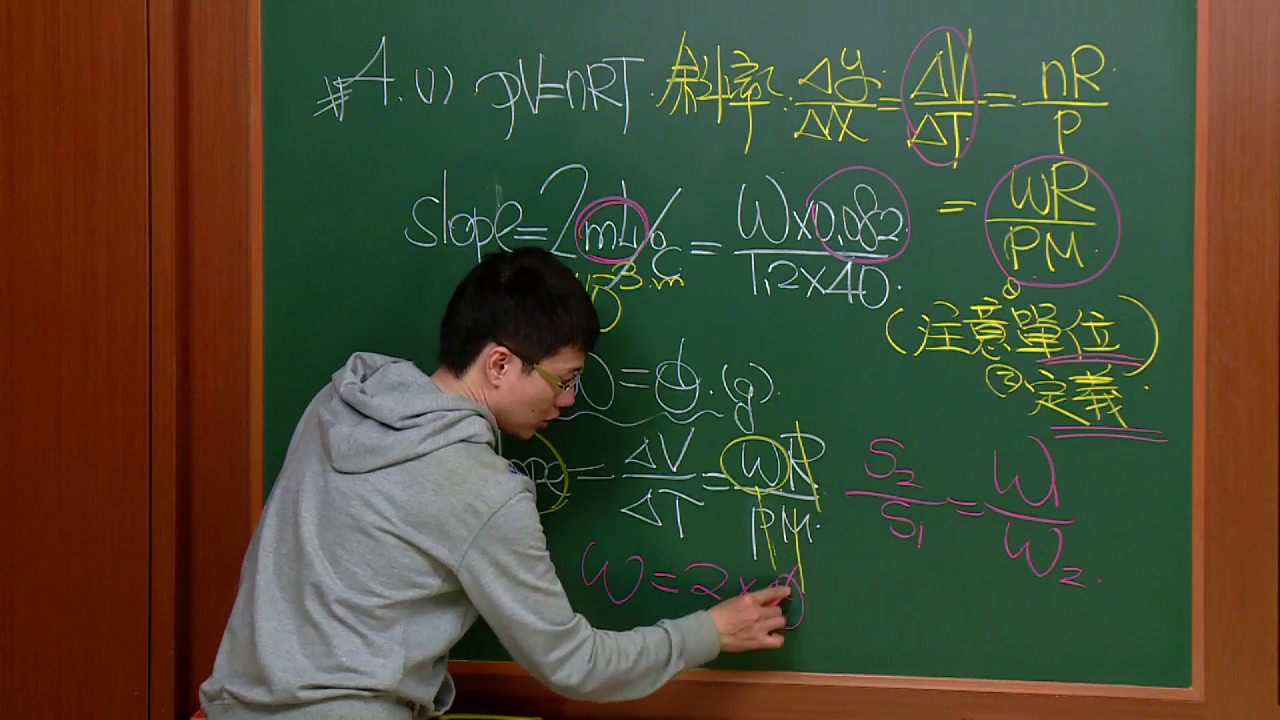 #4. (1) PV=nRT. 斜率: Δy/Δx = ΔV/ΔT = nR/P
slope = 2 mL/°C = W×0.082/1.2×40 = WR/PM
10⁻³
(①注意單位
②定義)
= φ (g)
= ΔV/ΔT = WR/PM
S₂/S₁ = W₁/W₂
W = 2×